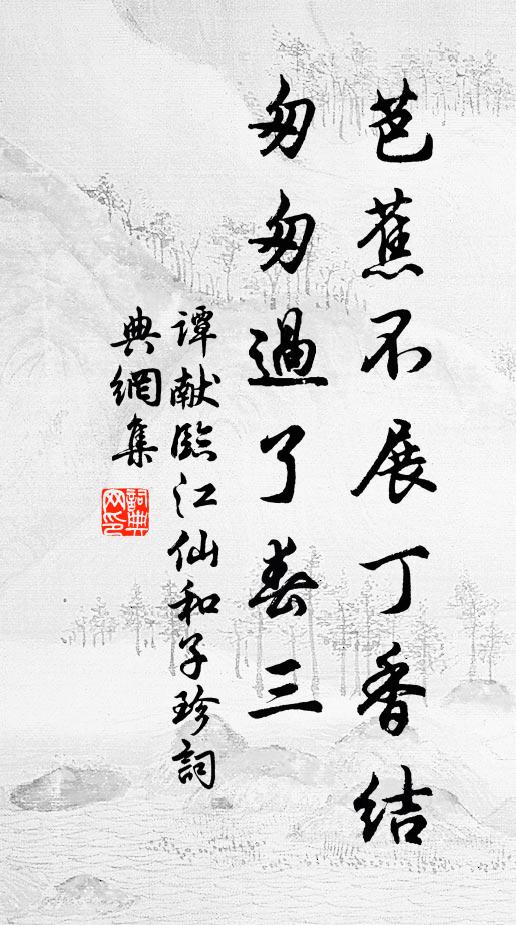 芭蕉不展丁香结
匆匆過了春三
谭献臨江仙和子珍詞
典網集
詞典网印